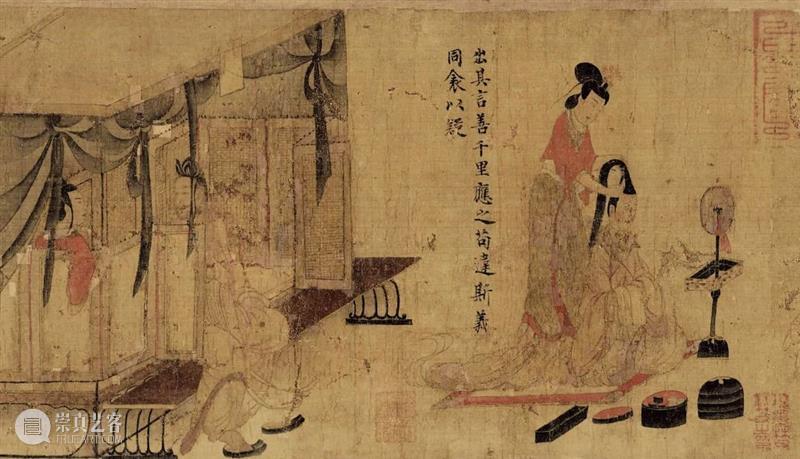 出其言善千里應之苟違斯義
同衾以疑
崇真艺客
TRUEART.COM